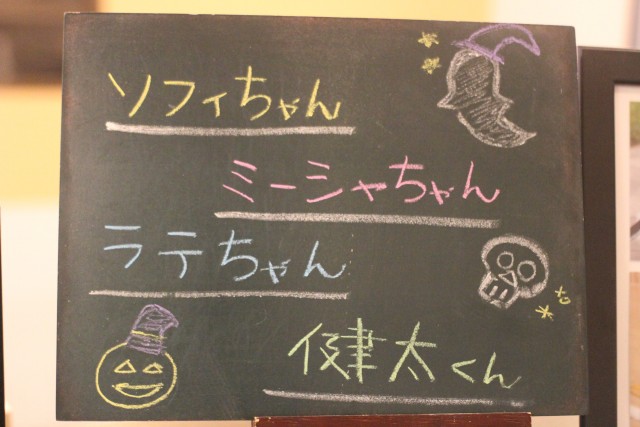 ソフィちゃん
ミーシャちゃん
ラテちゃん
健太くん